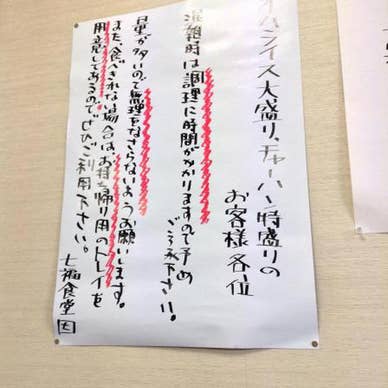 オムライス大盛り、チャーハン特盛りの
お客様各位
混雑時は調理に時間がかかりますので予め
ご了承下さい。
量が多いので無理をなさらないようお願いします。
また、食べきれない場合は、お持ち帰り用のトレイを
用意してあるので、ぜひご利用下さい。
七福食堂